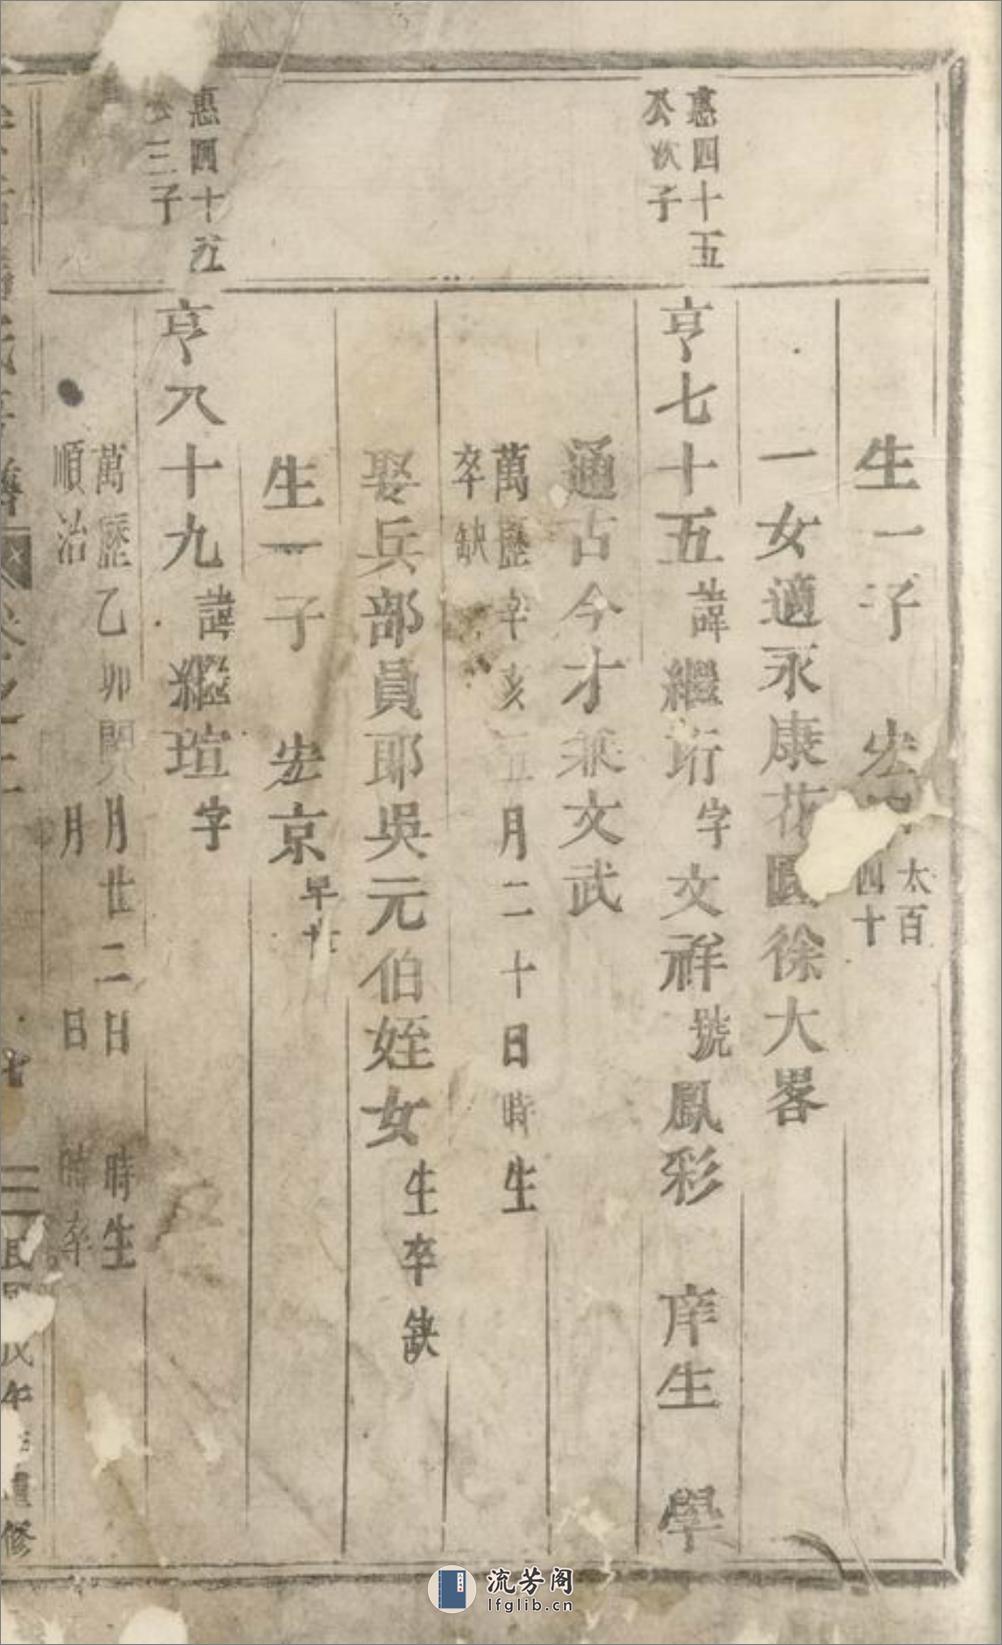 生一子 宏 太百四十
一女適永康花園徐大畧
惠四十五
公次子
亨七十五諱繼珩字文祥號鳳彩 庠生 學
通古今才兼文武
萬歷辛亥五月二十日時生
卒缺
娶兵部員耶吳元伯姪女生卒缺
生一子 宏京早亡
惠四十五
公三子
亨八十九諱繼瑄字
萬歷乙卯閏八月廿二日 時生
順治 月 日 時卒
七
民國戊午 重修
流芳阁
lfglib.cn